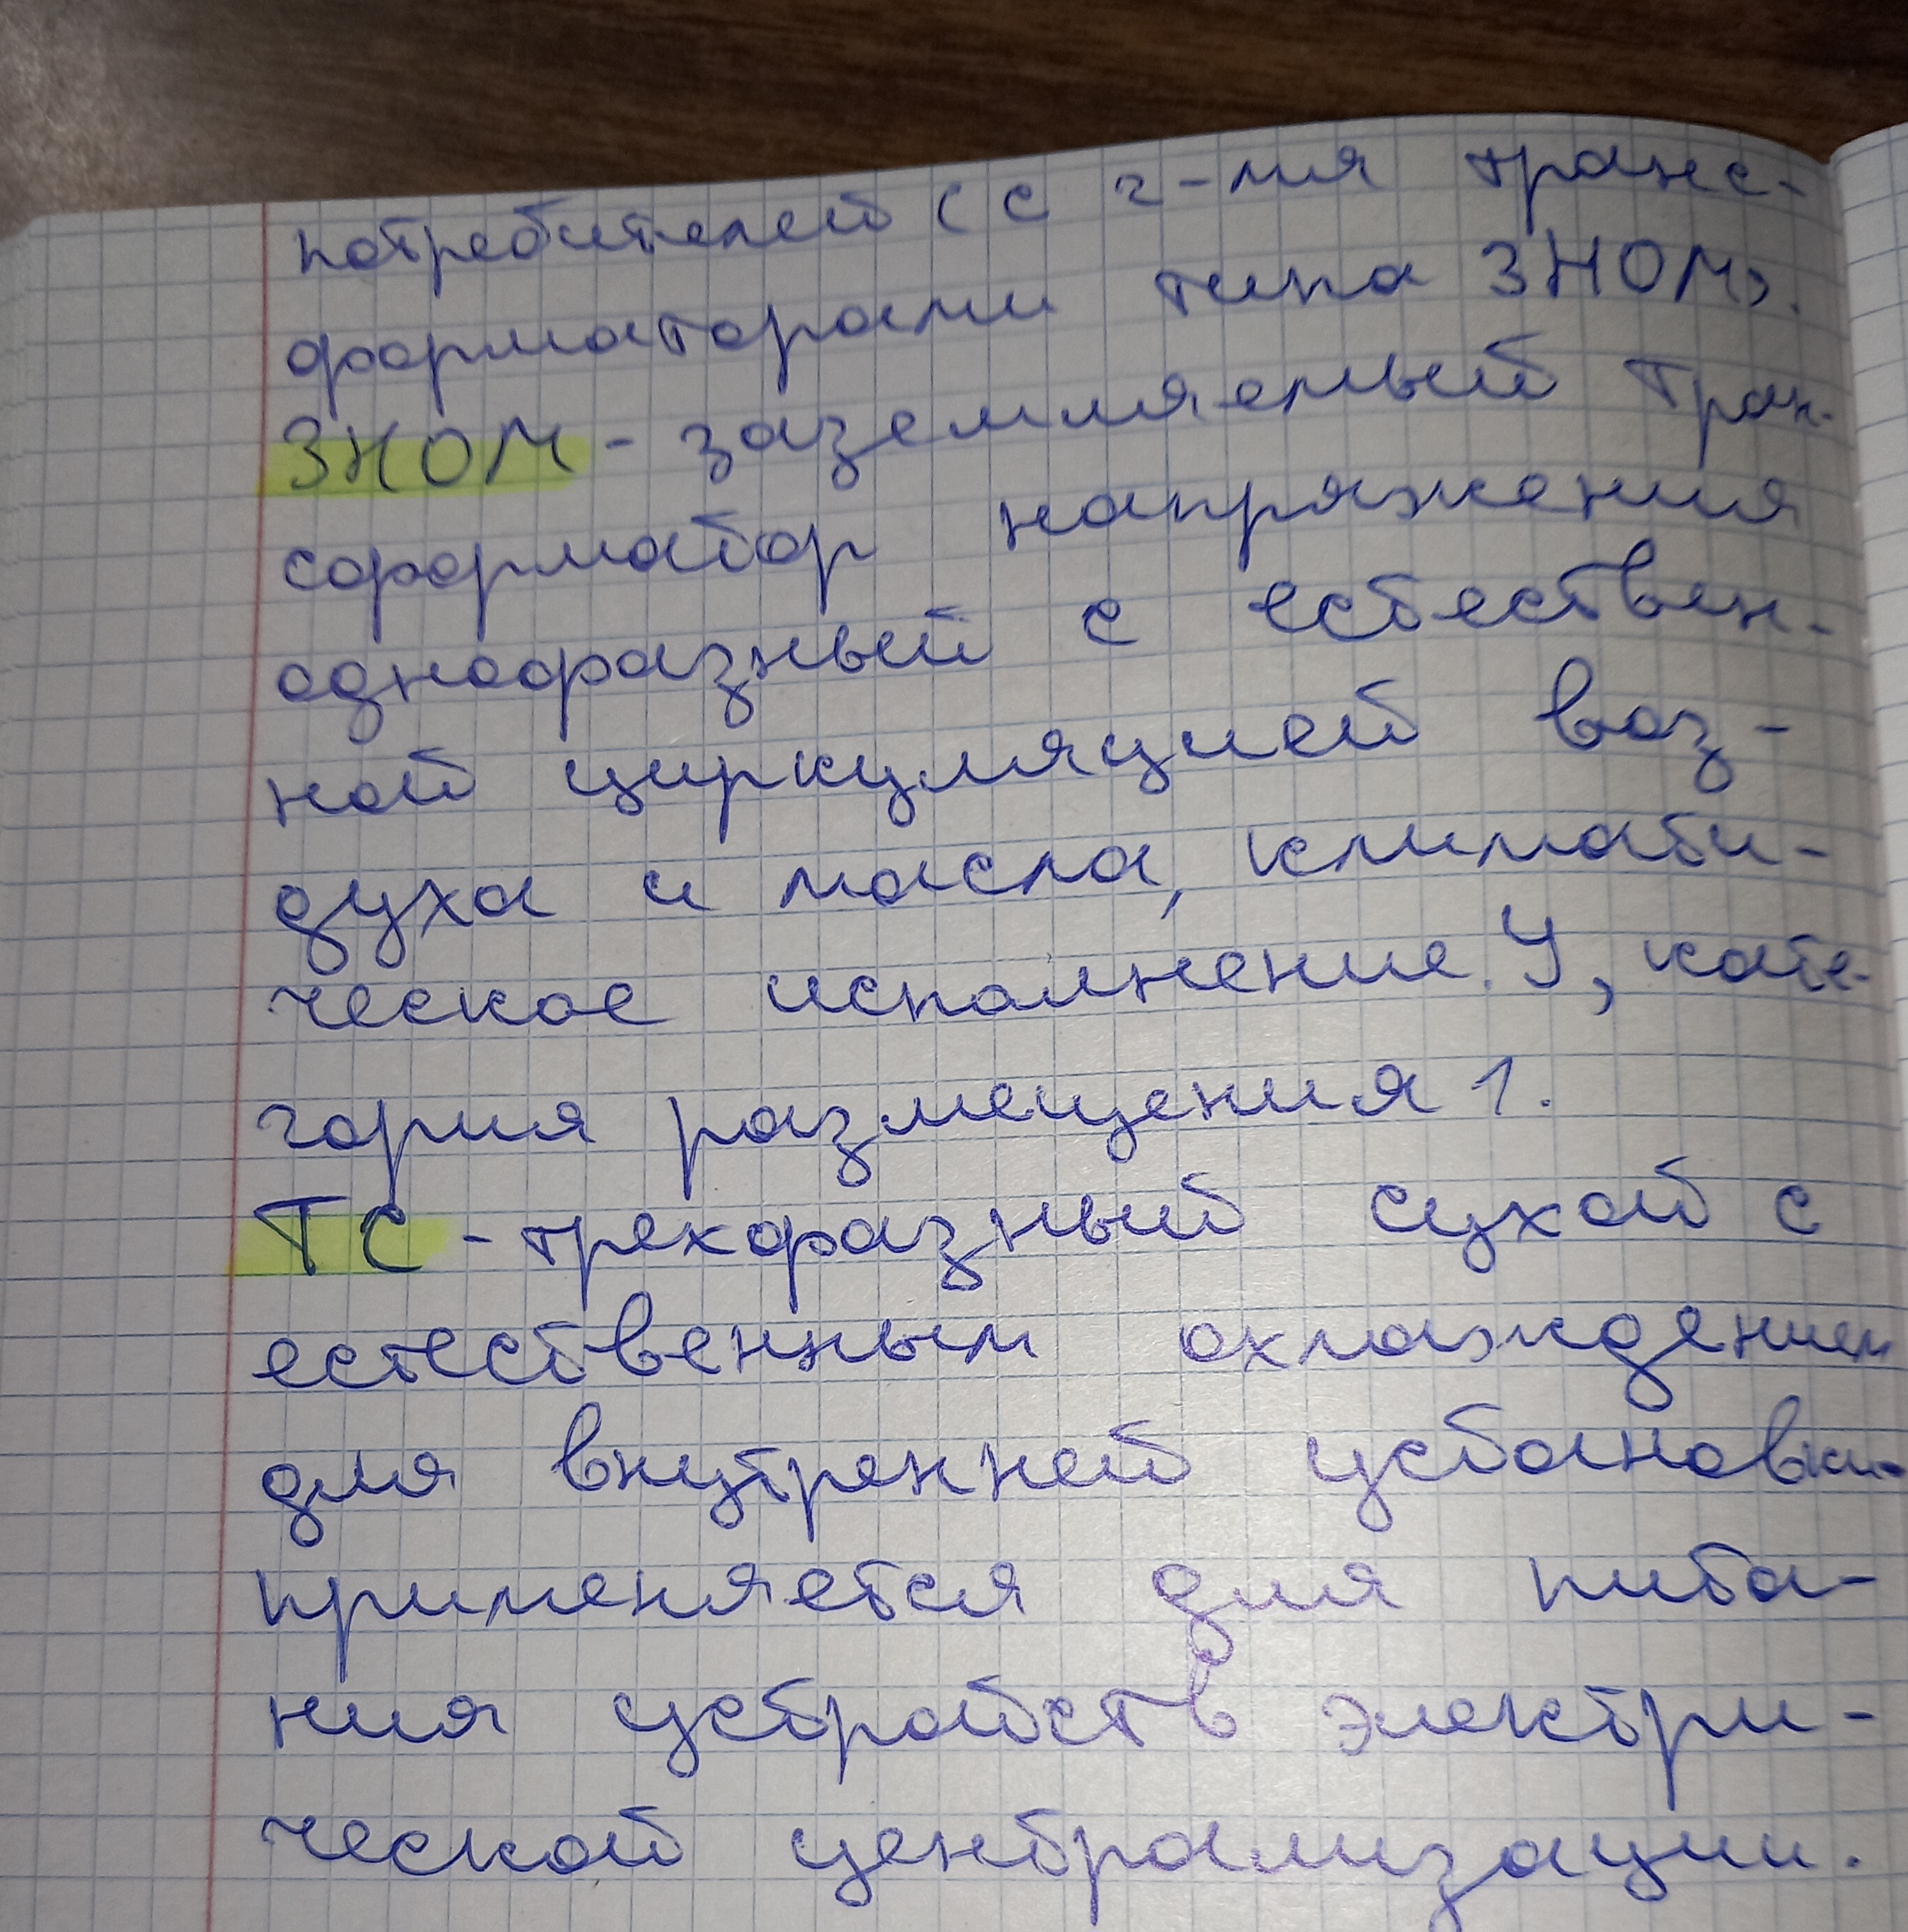 потребителей (с 2-мя транс-
форматорами типа ЗНОМ).
ЗНОМ - заземляемый тран-
сформатор напряжения
однофазный с естествен-
ной циркуляцией воз-
духа и масла, климати-
ческое исполнение У, кате-
гория размещения 1.
ТС - трехфазный сухой с
естественным охлаждением
для внутренней установки
применяется для пита-
ния устройств электри-
ческой централизации.